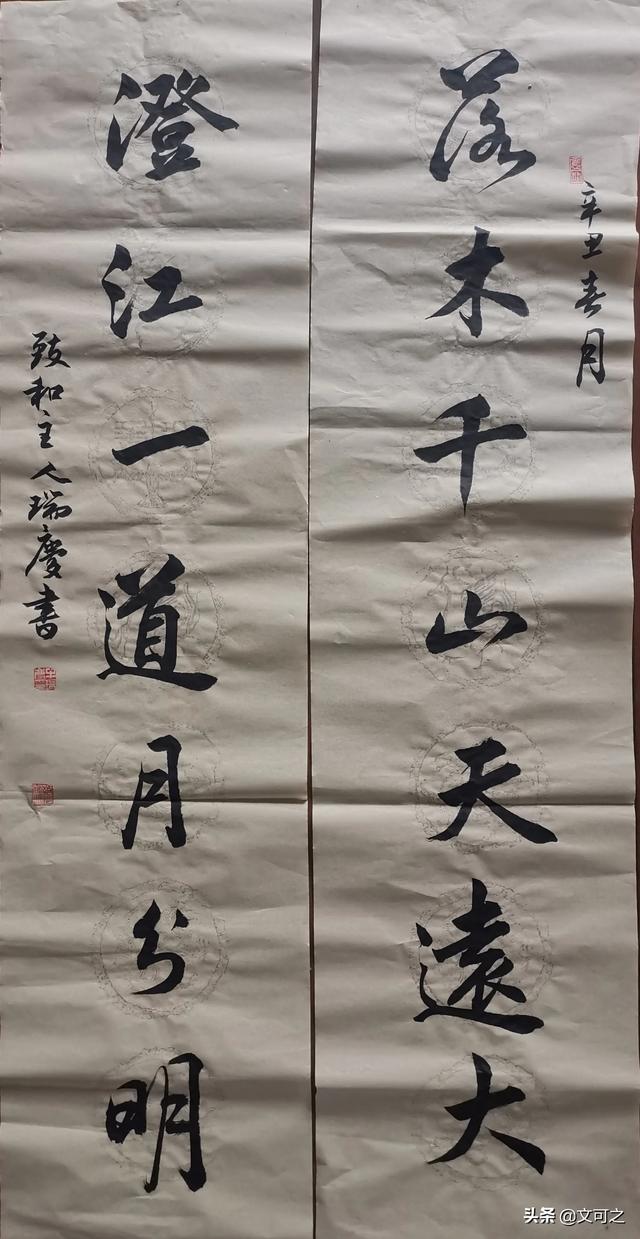 辛丑春月
落木千山天遠大
澄江一道月分明
致和主人瑞慶書
头条 @文可之